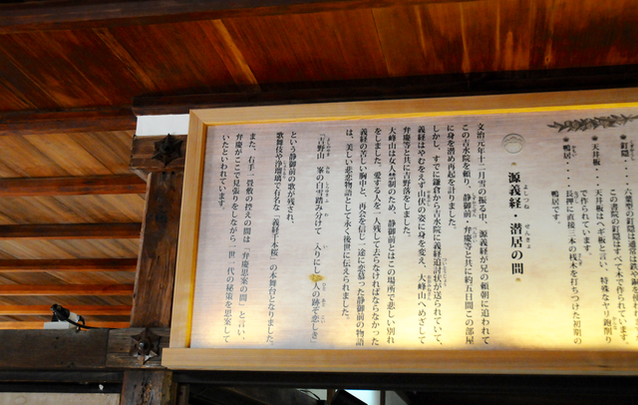 釘隠・・・・六葉型の釘隠は通常は
この書院の釘隠はすべて木で作られています。
天井板・・・天井板はヘギ板と言い、特殊なヤリ鉋削り
で作られています。
鴨居・・・・長押に直接二本の桟木を打ちつけた初期の
鴨居です。
源義経・潜居の間
よしつね せんきょ
文治元年十二月雪の振る中、源義経が兄の頼朝に追われて
この吉水院を頼り、静御前・弁慶等と共に約五日間この部屋
に身を潜め再起を計りました。
しかし、すでに鎌倉から吉水院に義経追討状が送られていて、
義経はやむをえず山伏の姿に身を変え、大峰山へめざして
弁慶等と共に吉野落をしました。
大峰山は女人禁制のため、静御前とはこの場所で悲しい別れ
をしました。愛する人を一人残して去らなければならなかった
義経の苦しい胸中と、再会を信じ一途に恋慕った静御前の物語
は、美しい悲恋物語として永く後世に伝えられました。
「吉野山 峯の白雪踏み分けて 入りにし人の跡ぞ恋しき」
という静御前の歌が残され、
歌舞伎や浄瑠璃で有名な「義経千本桜」の本舞台となりました。
また、右手一畳敷の控えの間は「弁慶思案の間」と言い、
弁慶がここで見張りをしながら一世一代の秘策を思案して
いたといわれています。